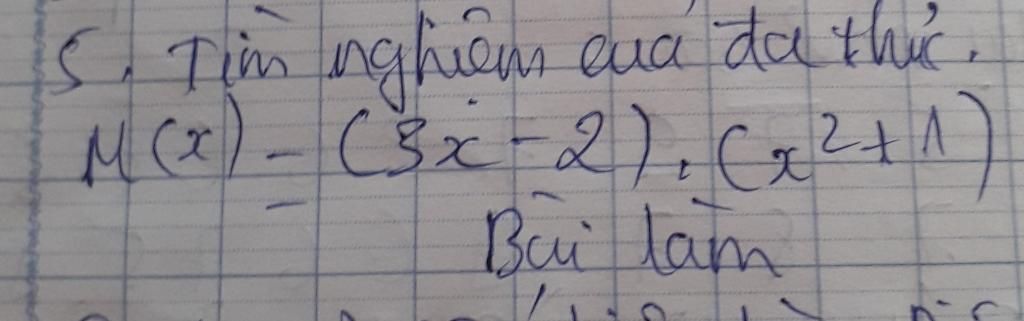 5. Tìm nghiệm của đa thức.
M(x) = (3x - 2).(x² + 1)
Bài làm